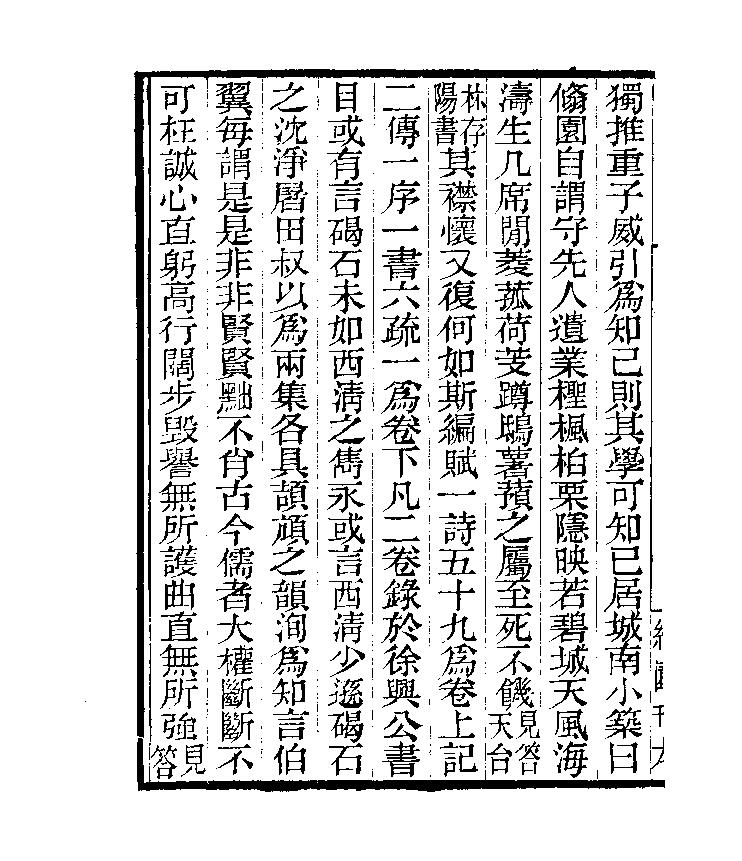 獨推重子威引爲知己則其學可知已居城南小築曰
翛園自謂守先人遺業檉楓柏栗隱映若碧城天風海
濤生几席閒菱菰荷芰蹲鴟薯蕷之屬至死不饑見答天台
林存陽書其襟懷又復何如斯編賦一詩五十九爲卷上記
二傳一序一書六疏一爲卷下凡二卷錄於徐興公書
目或有言碣石未如西淸之雋永或言西淸少遜碣石
之沈淨屠田叔以爲兩集各具頡頏之韻洵爲知言伯
翼每謂是是非非賢賢黜不肖古今儒者大權斷斷不
可枉誠心直躬高行闊步毀譽無所護曲直無所強見答